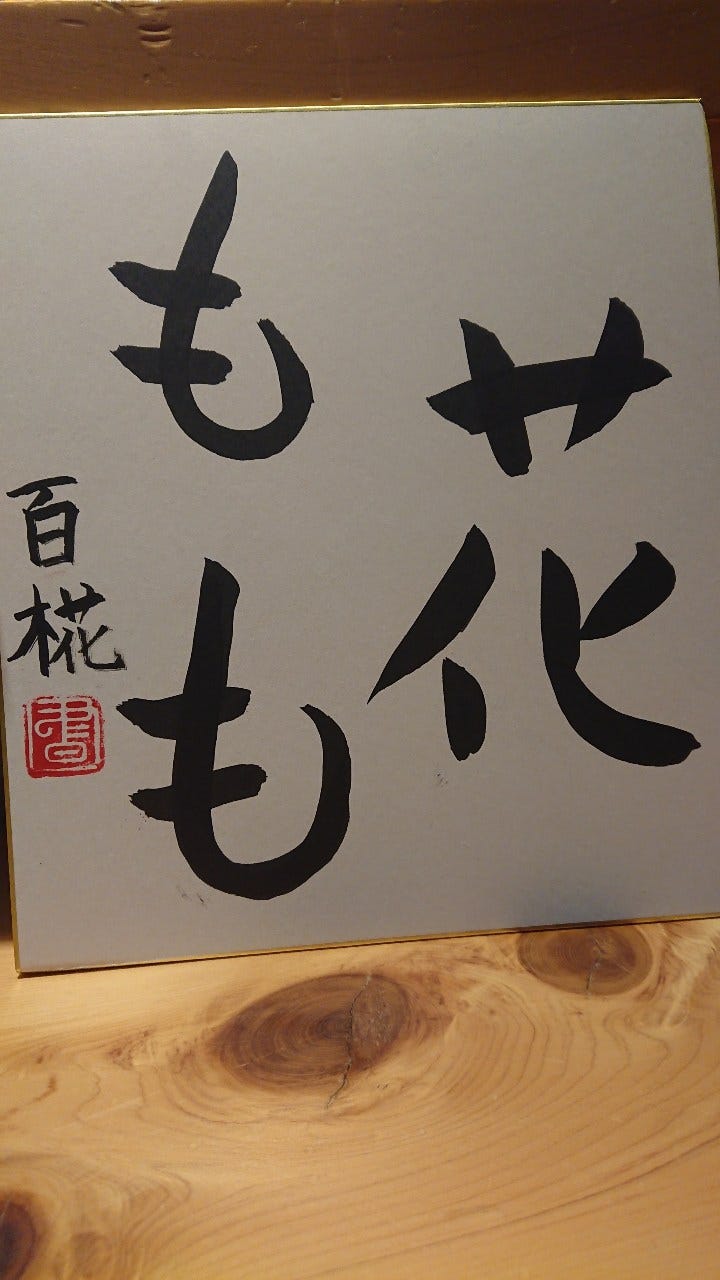 花
もも
百椛
書